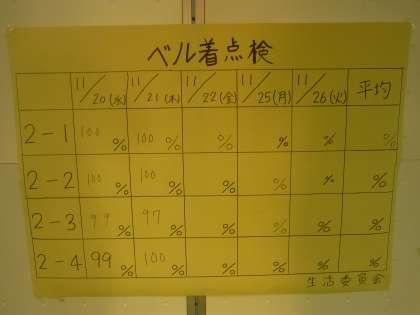 ベル着点検
11/20(水) 11/21(木) 11/22(金) 11/25(月) 11/26(火) 平均
2-1 100% 100% % % % %
2-2 100% 100% % % % %
2-3 99% 97% % % % %
2-4 99% 100% % % % %
生活委員会